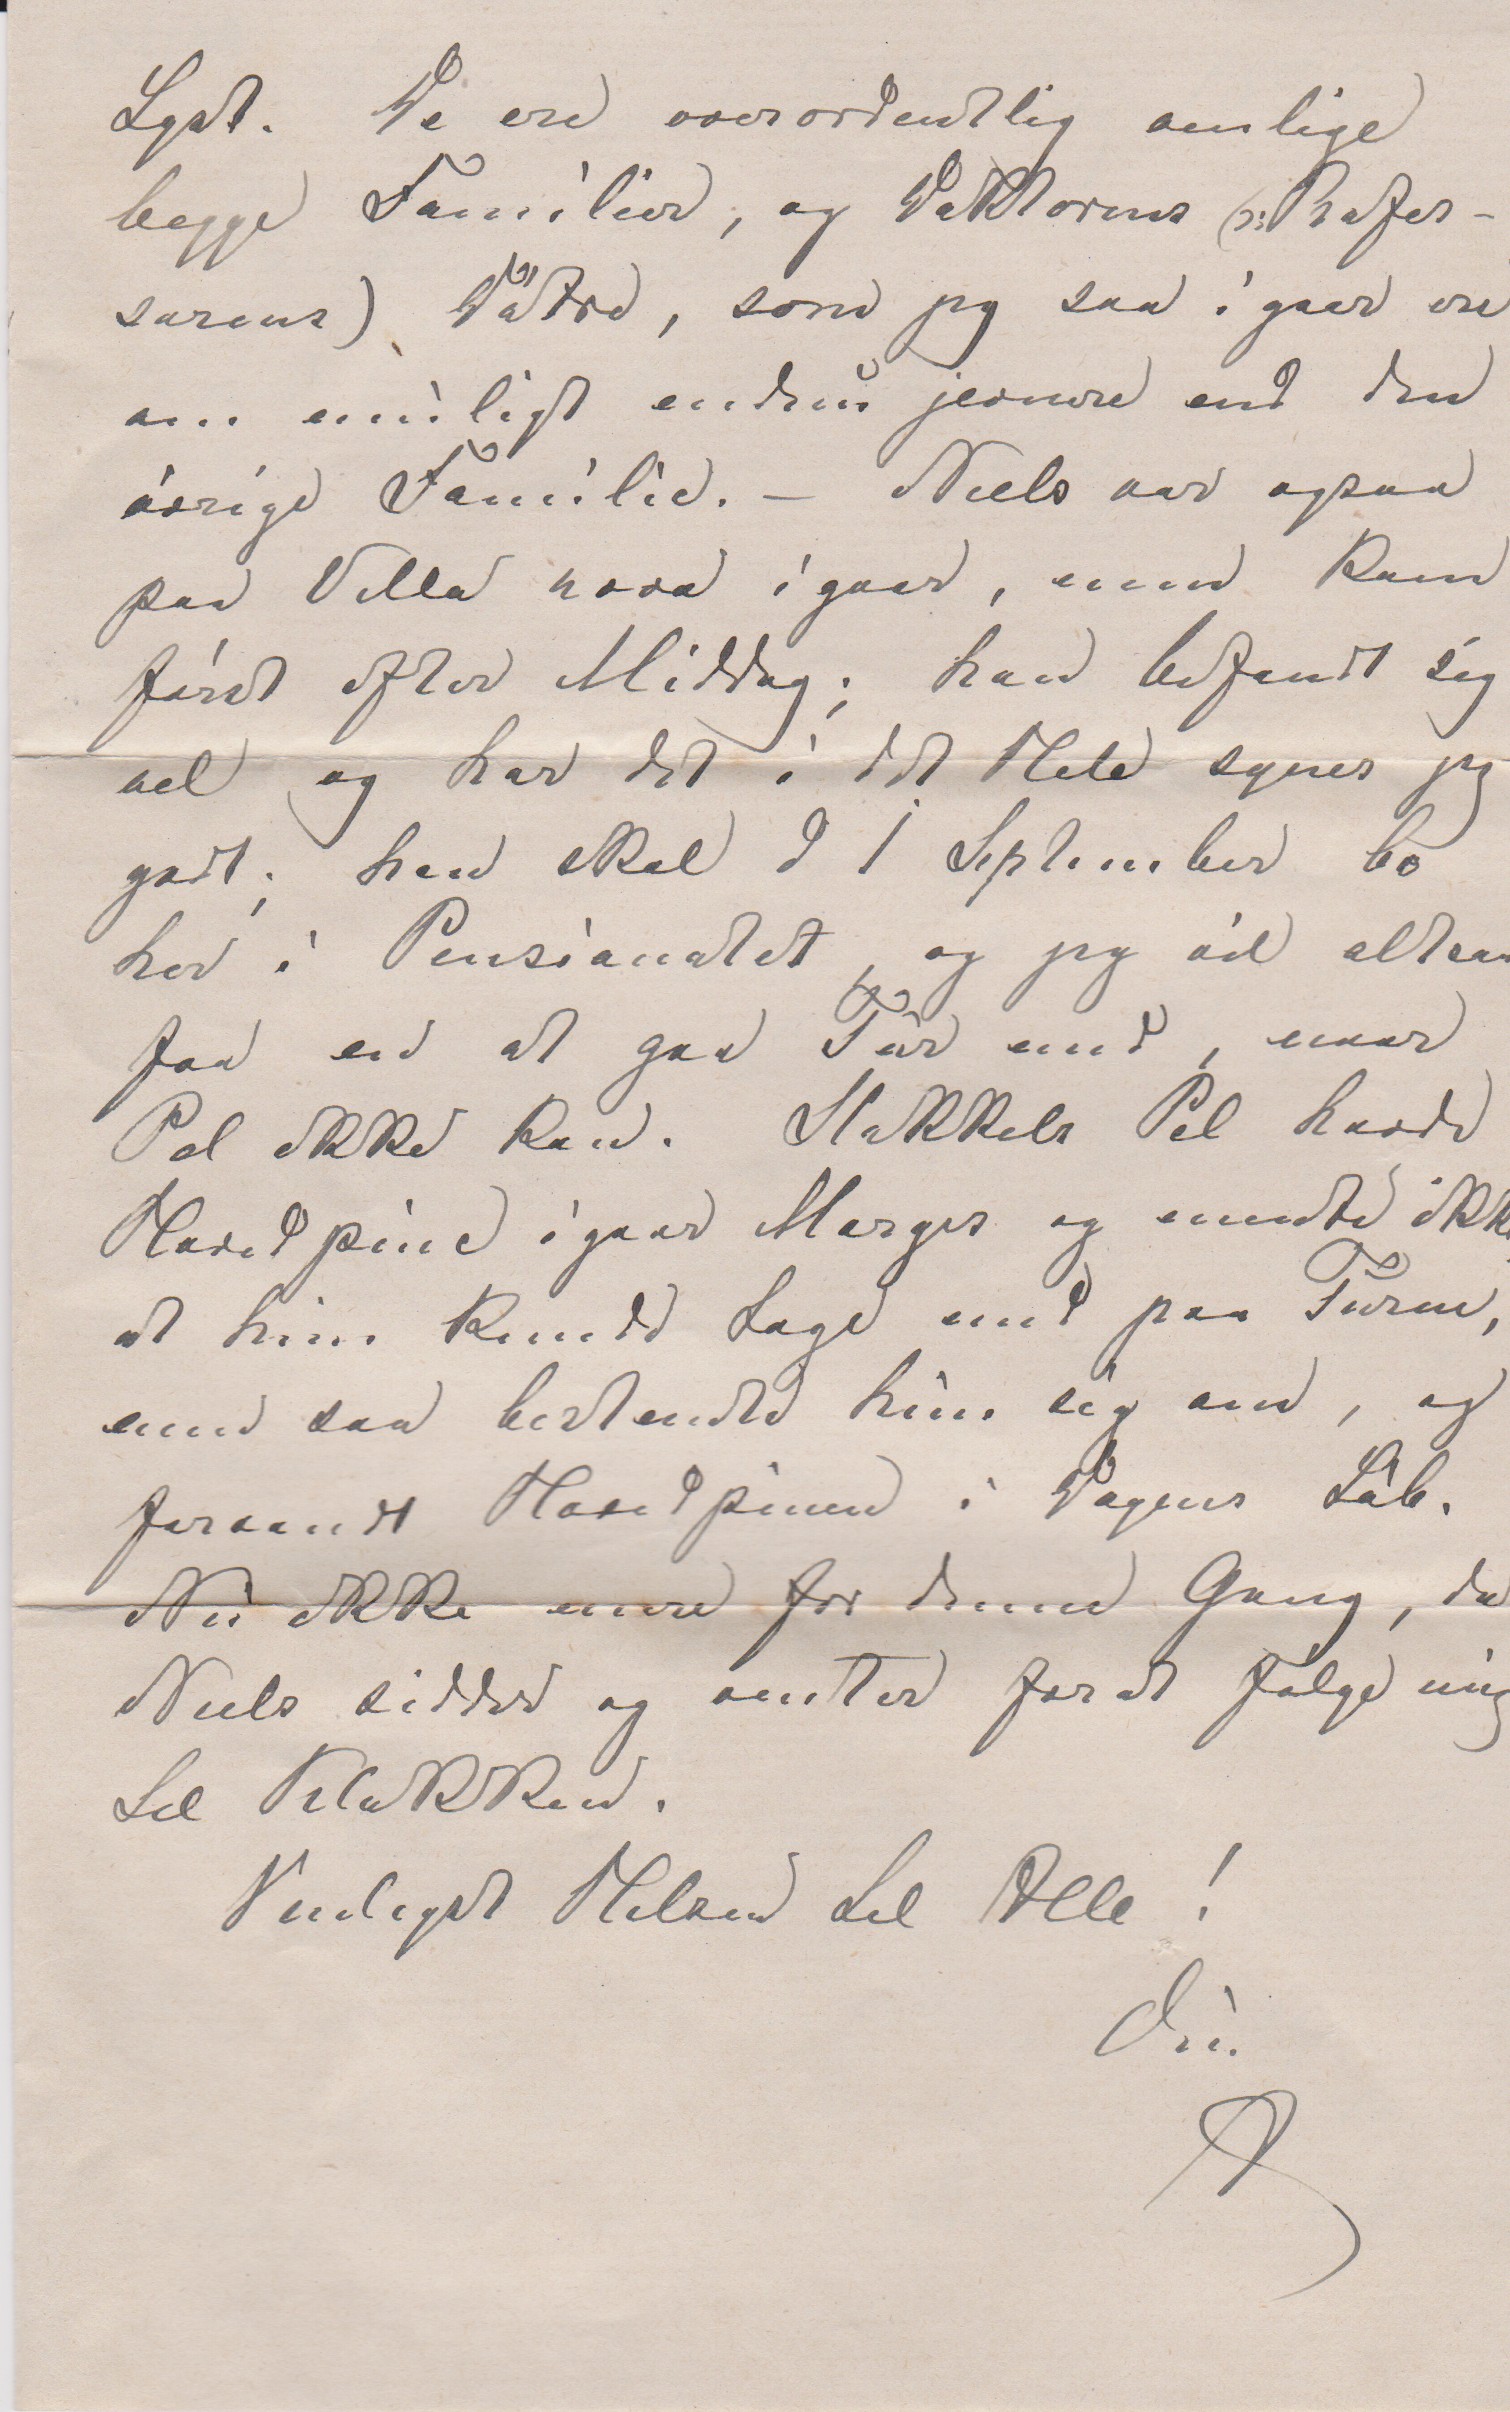 Lyst. De ere overordentlig venlige
begge Familier, og Doktorens (ɔ: Profes-
sorens) Døtre, som jeg saa igaar ere
om muligt endnu jevnere end den
øvrige Familie. — Niels var ogsaa
paa Villa nova igaar, men kom
først efter Middag; han befandt sig
vel og har det i det Hele synes jeg
godt; han skal d 1 September bo
her i Pensionatet, og jeg vil altsaa
faa en at gaa Tur med, naar
Pol ikke kan. Stakkels Pol havde
Hovedpine igaar Morges og mente ikke
at hun kunde tage med paa Turen,
men saa bestemte hun sig om, og
forvandt Hovedpinen i Dagens Løb.
Nu ikke mere for denne Gang, da
Niels sidder og venter for at følge mig
til Klokken.
Venligst Hilsen til Alle!
Din